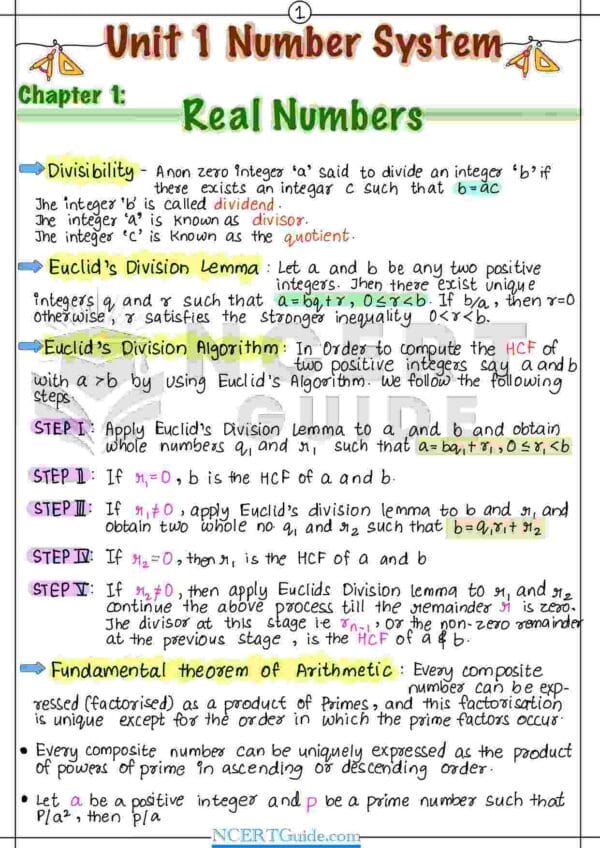 1
Unit 1 Number System
Chapter 1:
Real Numbers
Divisibility - A non zero integer 'a' said to divide an integer 'b' if
there exists an integar c such that b=ac
The integer 'b' is called dividend.
The integer 'a' is known as divisor.
The integer 'c' is known as the quotient.
Euclid's Division Lemma : Let a and b be any two positive
integers. Then there exist unique
integers q and r such that a=bq+r, 0≤r<b. If b/a, then r=0
otherwise, r satisfies the stronger inequality 0<r<b.
Euclid's Division Algorithm: In Order to compute the HCF of
two positive integers say a and b
with a >b by using Euclid's Algorithm. We follow the following
steps.
STEP I: Apply Euclid's Division Lemma to a and b and obtain
whole numbers q₁ and r₁ such that a=bq₁+r₁, 0≤r₁<b
STEP II: If r₁=0, b is the HCF of a and b.
STEP III: If r₁≠0, apply Euclid's division lemma to b and r₁ and
obtain two whole no q₁ and r₂ such that b=q₁r₁+ r₂
STEP IV: If r₂=0, then r₁ is the HCF of a and b
STEP V: If r₂≠0, then apply Euclids Division lemma to r₁ and r₂
continue the above process till the remainder r is zero.
The divisor at this stage i.e rₙ₋₁, or the non-zero remainder
at the previous stage, is the HCF of a & b.
Fundamental theorem of Arithmetic : Every composite
number can be exp-
ressed (factorised) as a product of Primes, and this factorisation
is unique except for the order in which the prime factors occur.
• Every composite number can be uniquely expressed as the product
of powers of prime in ascending or descending order.
• Let a be a positive integer and p be a prime number such that
P/a², then p/a
NCERTGuide.com
NCERT
GUIDE